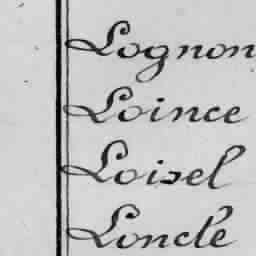 Lognon
Loince
Loisel
Lonclé